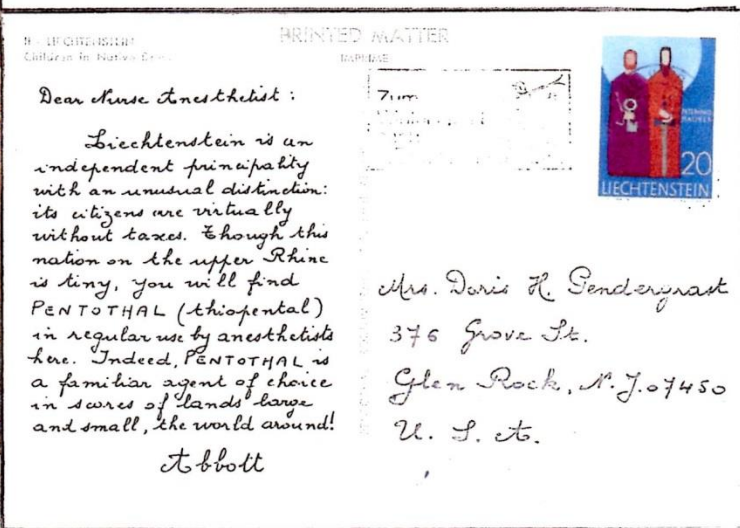 LIECHTENSTEIN
Children in Native
PRINTED MATTER
Dear Nurse Anesthetist:
Liechtenstein is an
independent principality
with an unusual distinction:
its citizens are virtually
without taxes. Though this
nation on the upper Rhine
is tiny, you will find
PENTOTHAL (thiopental)
in regular use by anesthetists
here. Indeed, PENTOTHAL is
a familiar agent of choice
in scores of lands large
and small, the world around!
Abbott
Zum
20
LIECHTENSTEIN
Mrs. Doris H. Pendergrast
376 Grove St.
Glen Rock, N.J. 07450
U. S. A.